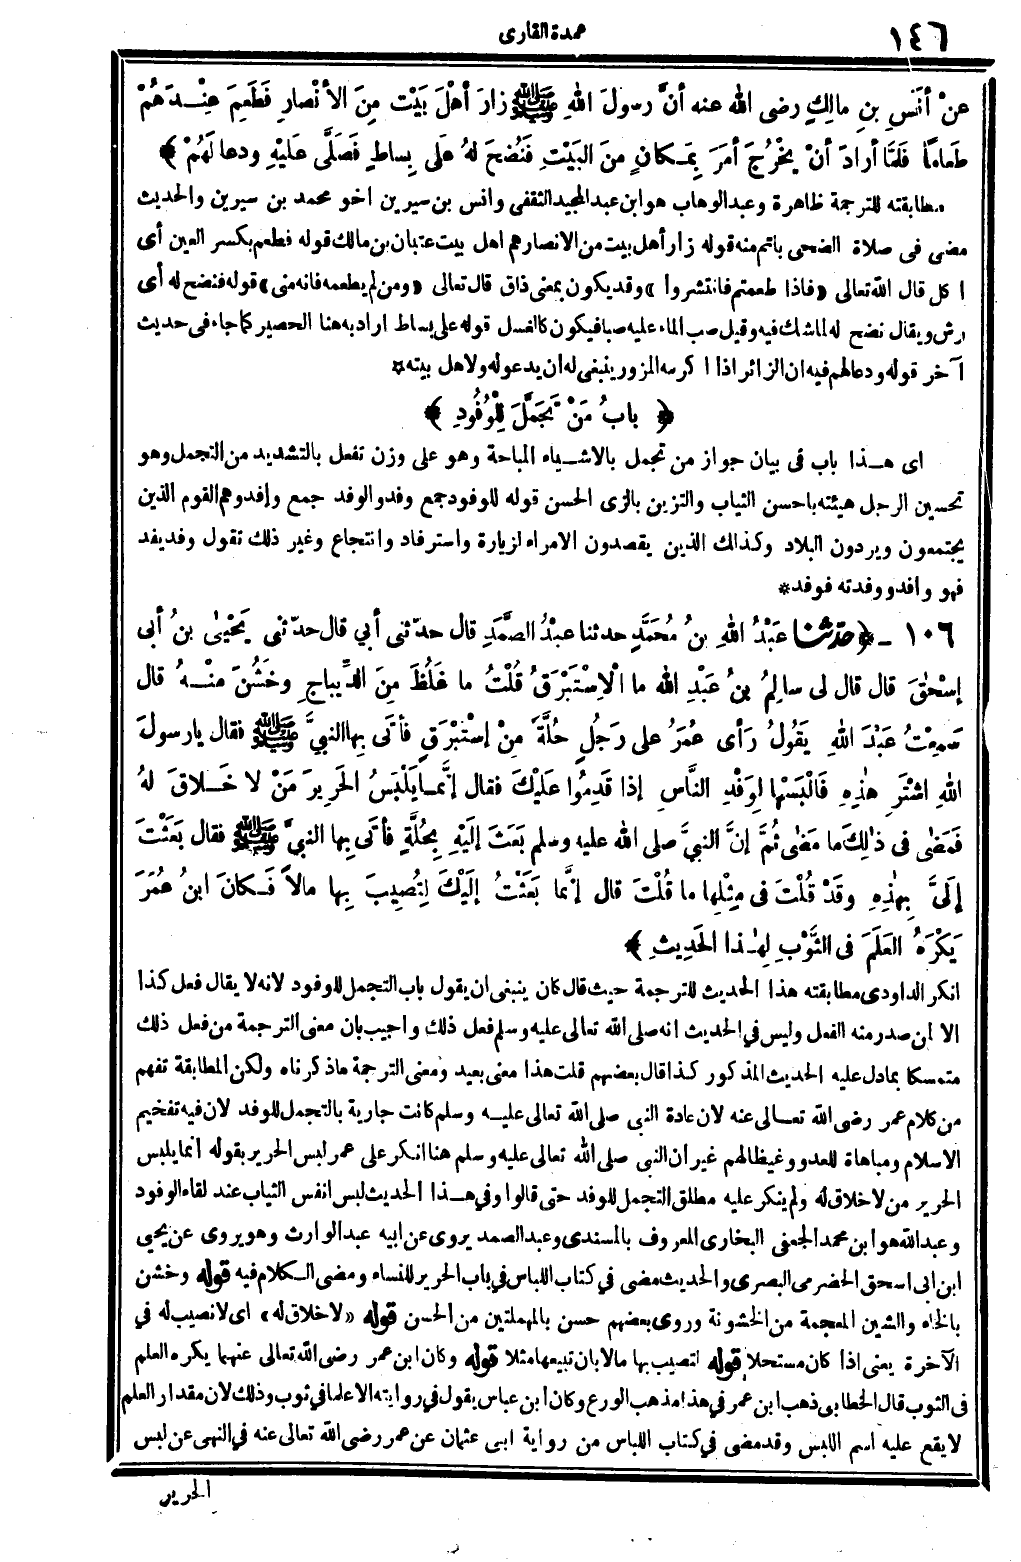 ١٤٦
عمدة القارى
عنْ أنَسِ بنِ مالِكٍ رضى الله عنه أنَّ رسولَ اللهِ ﷺ زارَ أهْلَ بَيْت مِنَ الأنْصارِ فَطَعِمَ عِنْـدَهُمْ
طَعامًا فَلمَّا أرادَ أنْ يَخْرُجَ أمَرَ بِمَـكانٍ مِنَ البَيْتِ فَنُضِحَ لهُ عَلَى بِساطٍ فَصَلَّى عَلَيْهِ ودعا لَهُمْ ﴾
مطابقته للترجمة ظاهرة وعبدالوهاب هوابن عبدالمجيد الثقفى وانس بن سيرين اخو محمد بن سيرين والحديث
مضى فى صلاة الضحى باتم منه قوله زار أهل بيت من الانصارهم اهل بيت عتبان بن مالك قوله فطعم بكسر العين أى
اكل قال الله تعالى «فاذا طعمتم فانتشروا» وقديكون بمعنى ذاق قال تعالى «ومن لم يطعمه فانه منى» قوله فنضح له أى
رش ويقال نضح له لماشك فيه وقيل صب الماء عليه صبافيكون كالغسل قوله على بساط اراد به هنا الحصير كماجاء فى حديث
آخر قوله ودعالهم فيه ان الزائر اذا اكرمه المزور ينبغى له ان يدعوله ولاهل بيته *
﴿ بابُ مَنْ تَجَمَّلَ لِلْوُفُودِ ﴾
اى هـذا باب فى بيان جواز من تجمل بالاشـياء المباحة وهو على وزن تفعل بالتشديد من التجمل وهو
تحسين الرجل هيئته باحسن الثياب والتزين بالزى الحسن قوله للوفود جمع وفد والوفد جمع وافد وهم القوم الذين
يجتمعون ويردون البلاد وكذالك الذين يقصدون الامراء لزيارة واسترفاد وانتجاع وغير ذلك تقول وفد يفد
فهو وافد ووفدته فوفد *
١٠٦ ـ ﴿ حدّثنا عَبْدُ اللهِ بنُ مُحَمَّدٍ حدثنا عبْدُ الصَّمَدِ قال حدّثنى أبي قال حدّثنى يَحْيىٰ بنُ أبى
إسْحٰقَ قال قال لى سالِمُ بنُ عَبْدِ الله ما الْاِسْتَبْرَقُ قُلْتُ ما غَلُظَ مِنَ الدِّيباجِ وخَشُنَ مِنْـهُ قال
سَمِعْتُ عَبْدَ اللهِ يَقُولُ رَأى عُمَرُ على رَجُلٍ حُلَّةً مِنْ إسْتَبْرَقٍ فأتَى بِها النبيَّ ﷺ فقال يارسولَ
اللهِ اشْتَرِ هٰذِهِ فَالْبَسْها لِوَفْدِ النَّاسِ إذا قَدِمُوا عَلَيْكَ فقال إنَّمـا يَلْبَسُ الحَرِيرَ مَنْ لا خَـلاقَ لهُ
فَمَضٰى فى ذٰلِكَ ما مَضٰى ثُمَّ إنَّ النبيَّ صلى الله عليه وسلم بَعَثَ إلَيْهِ بِحُلَّةٍ فأتَى بِها النبيَّ ﷺ فقال بَعَثْتَ
إلَىَّ بِهٰذِهِ وقَدْ قُلْتَ فى مِثْلِها ما قُلْتَ قال إنَّما بَعَثْتُ إلَيْكَ لِتُصِيبَ بِها مالاً فَـكانَ ابنُ عُمَرَ
يَكْرَهُ العَلَمَ فى الثَّوْبِ لِهٰـذا الحَدِيثِ ﴾
انكر الداودى مطابقته هذا الحديث للترجمة حيث قال كان ينبغى ان يقول باب التجمل للوفود لانه لا يقال فعل كذا
الا ان صدر منه الفعل وليس في الحديث انه صلى الله تعالى عليه وسلم فعل ذلك واجيب بان معنى الترجمة من فعل ذلك
متمسكا بمادل عليه الحديث المذكور كذا قال بعضهم قلت هذا معنى بعيد ومعنى الترجمة ماذكرناه ولكن المطابقة تفهم
من كلام عمر رضى الله تعـالى عنه لان عادة النبى صلى الله تعالى عليـه وسلم كانت جارية بالتجمل للوفد لان فيه تفخيم
الاسلام ومباهاة للعدو وغيظا لهم غير أن النبى صلى الله تعالى عليه وسلم هنا انكر على عمر لبس الحرير بقوله انما يلبس
الحرير من لاخلاق له ولم ينكر عليه مطلق التجمل للوفد حتى قالوا وفي هـذا الحديث لبس انفس الثياب عند لقاء الوفود
وعبدالله هوابن محمد الجعفى البخارى المعروف بالمسندى وعبد الصمد يروى عن ابيه عبد الوارث وهو يروى عن يحيى
ابن ابى اسحق الحضرمى البصرى والحديث مضى في كتاب اللباس في باب الحرير للنساء ومضى الـكلام فيه قوله وخشن
بالخاء والشين المعجمة من الخشونة وروى بعضهم حسن بالمهملتين من الحسن قوله «لاخلاق له» اى لا نصيب له في
الآخرة يعنى اذا كان مستحلا قوله لتصيب بها مالا بان تبيعها مثلا قوله وكان ابن عمر رضى الله تعالى عنهما يكره العلم
فى الثوب قال الخطابى ذهب ابن عمر في هذا مذهب الورع وكان ابن عباس يقول في روايته الا علما في ثوب وذلك لان مقدار العلم
لا يقع عليه اسم اللبس وقد مضى في كتاب اللباس من رواية ابى عثمان عن عمر رضى الله تعالى عنه في النهى عن لبس
الحرير